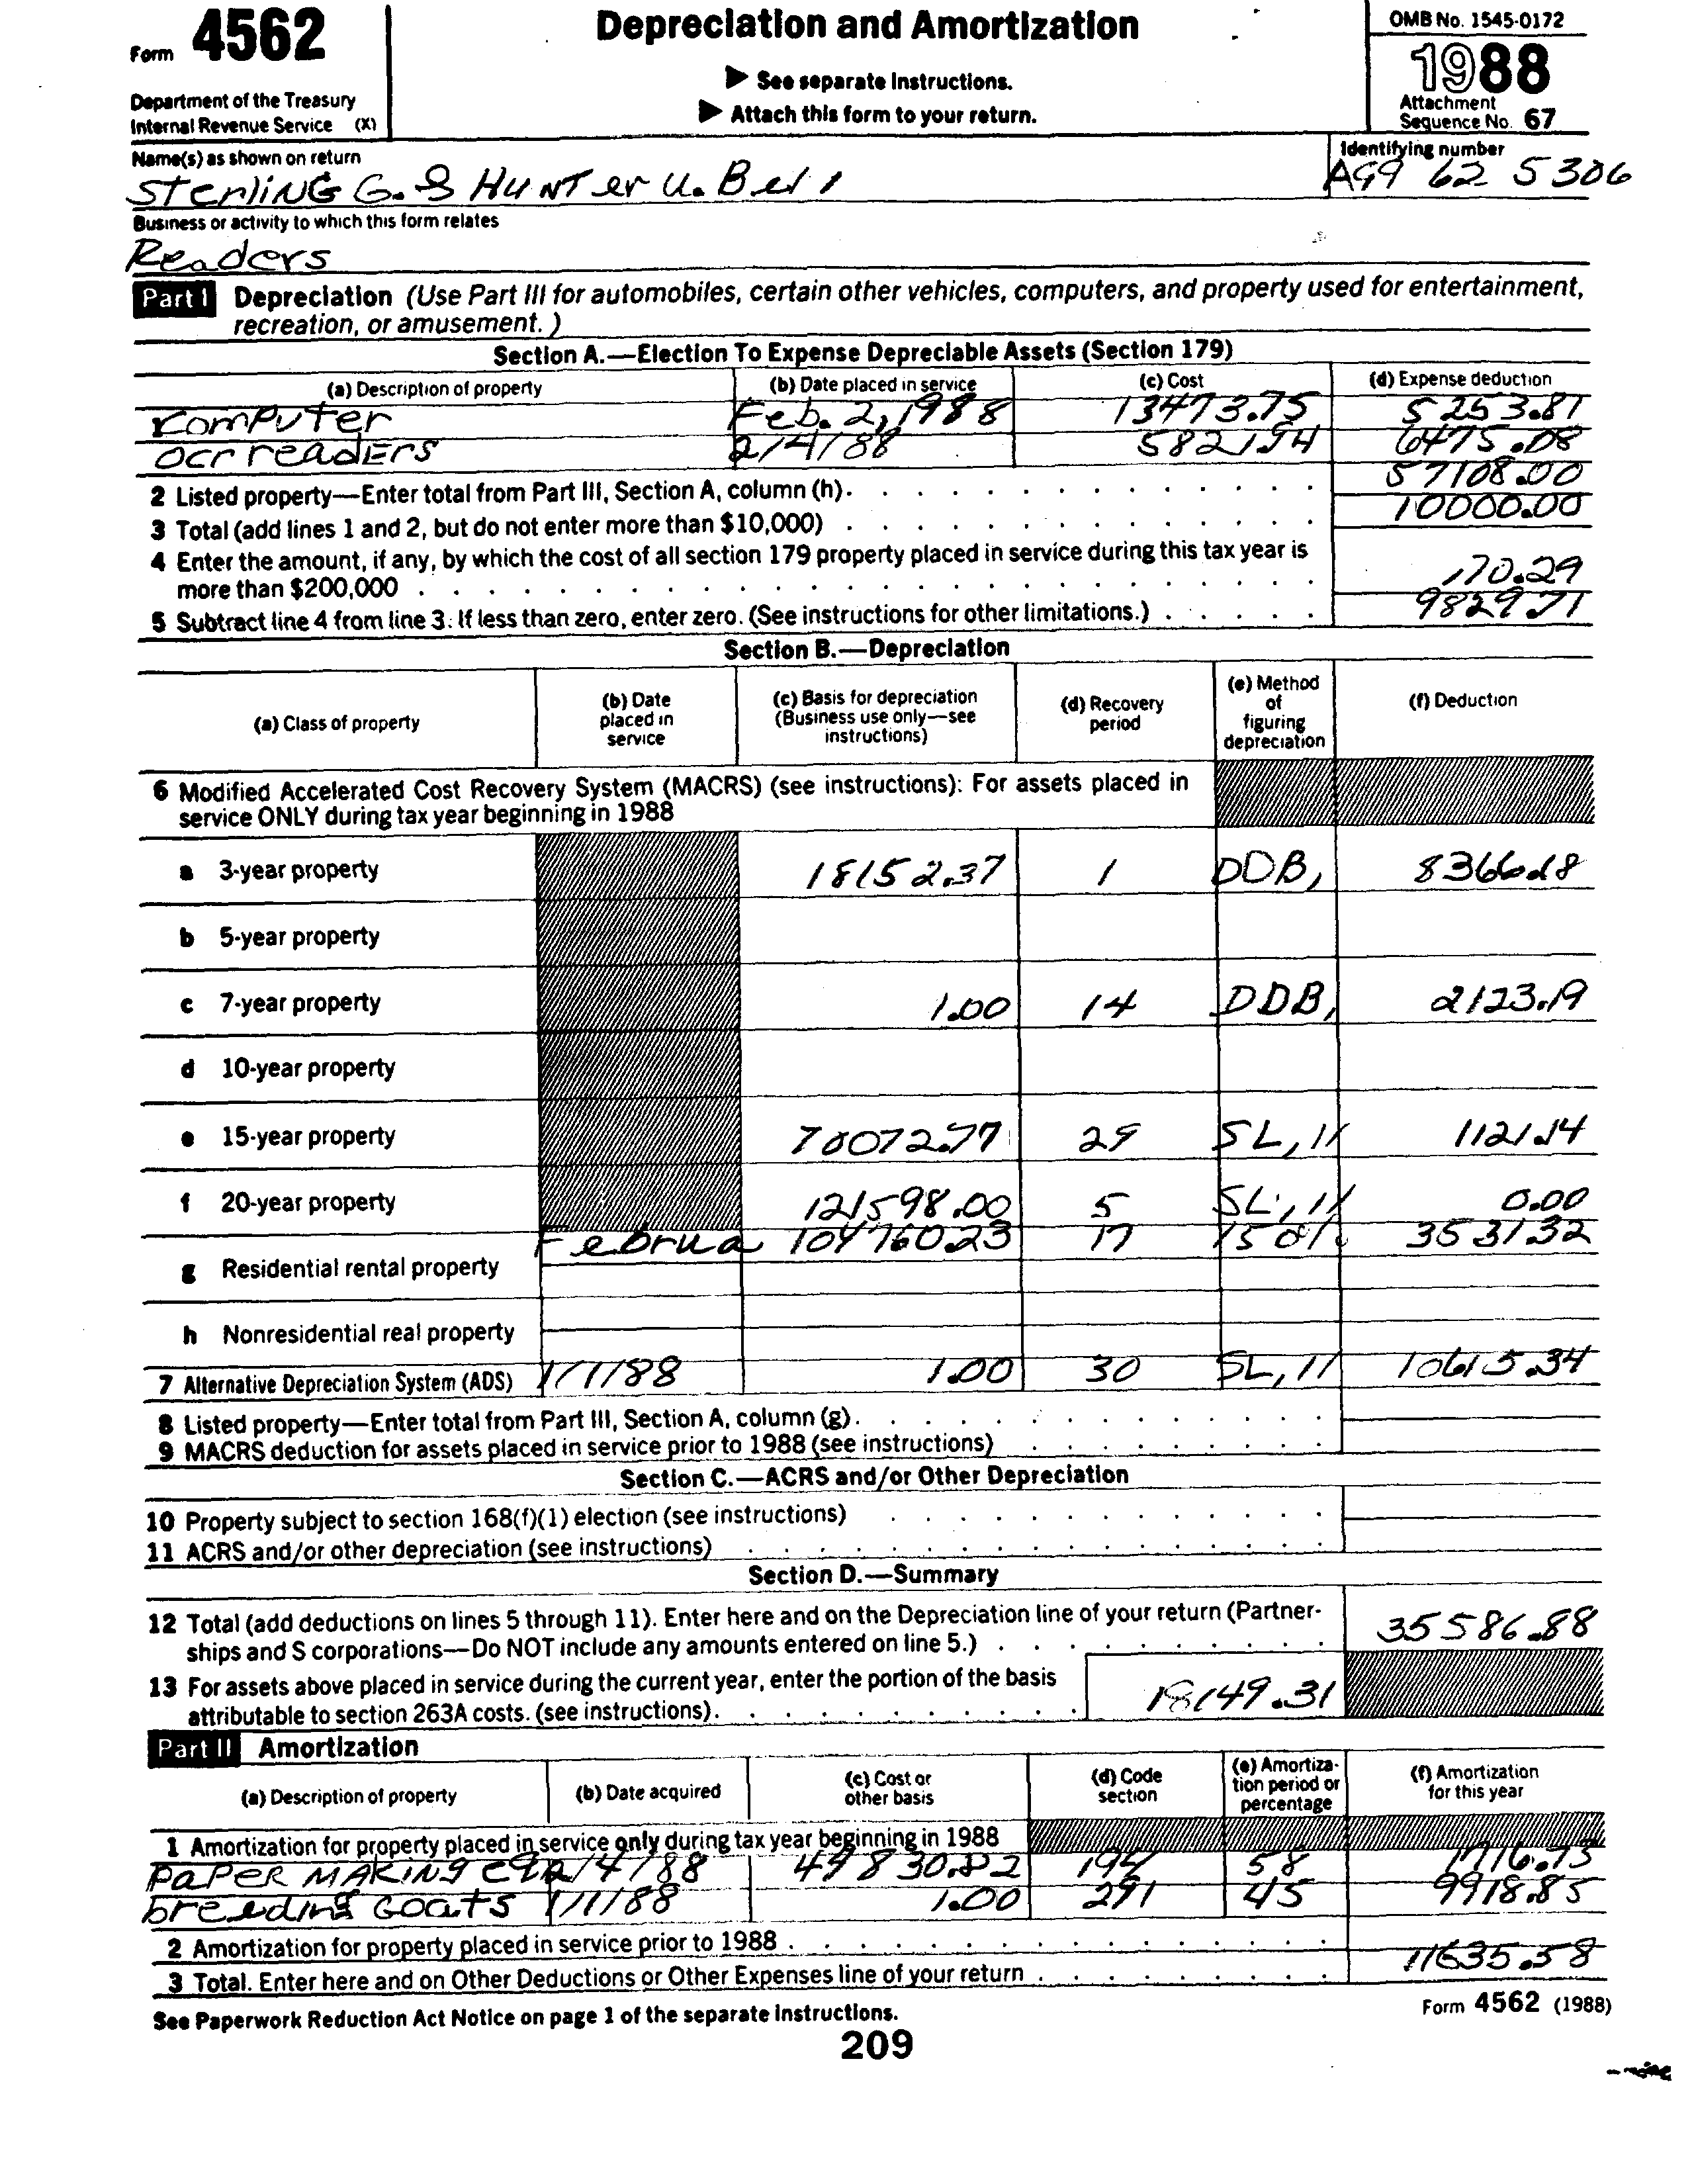 Form 4562
Department of the Treasury
Internal Revenue Service (X)
Depreciation and Amortization
▶ See separate Instructions.
▶ Attach this form to your return.
OMB No. 1545-0172
1988
Attachment
Sequence No. 67
Name(s) as shown on return
Identifying number
Sterling G. & Hunter U. Bell
A99 62 5306
Business or activity to which this form relates
Readers
Part I Depreciation (Use Part III for automobiles, certain other vehicles, computers, and property used for entertainment,
recreation, or amusement.)
Section A.—Election To Expense Depreciable Assets (Section 179)
(a) Description of property (b) Date placed in service (c) Cost (d) Expense deduction
Komputer Feb. 2, 1988 13473.75 5253.81
ocr readers 2/4/88 6475.08
2 Listed property—Enter total from Part III, Section A, column (h). 57108.00
3 Total (add lines 1 and 2, but do not enter more than $10,000) 10000.00
4 Enter the amount, if any, by which the cost of all section 179 property placed in service during this tax year is
more than $200,000 170.29
5 Subtract line 4 from line 3. If less than zero, enter zero. (See instructions for other limitations.) 9829.71
Section B.—Depreciation
(a) Class of property (b) Date placed in service (c) Basis for depreciation (Business use only—see instructions) (d) Recovery period (e) Method of figuring depreciation (f) Deduction
6 Modified Accelerated Cost Recovery System (MACRS) (see instructions): For assets placed in
service ONLY during tax year beginning in 1988
a 3-year property 18152.37 1 DDB, 8366.18
b 5-year property
c 7-year property 1.00 14 DDB, 2123.19
d 10-year property
e 15-year property 78072.77 29 SL, 11 1121.14
f 20-year property 121598.00 5 SL, 11 0.00
Februa 104760.23 17 150% 3531.32
g Residential rental property
h Nonresidential real property
7 Alternative Depreciation System (ADS) 1/1/88 1.00 30 SL, 11 10615.34
8 Listed property—Enter total from Part III, Section A, column (g).
9 MACRS deduction for assets placed in service prior to 1988 (see instructions)
Section C.—ACRS and/or Other Depreciation
10 Property subject to section 168(f)(1) election (see instructions)
11 ACRS and/or other depreciation (see instructions)
Section D.—Summary
12 Total (add deductions on lines 5 through 11). Enter here and on the Depreciation line of your return (Partner-
ships and S corporations—Do NOT include any amounts entered on line 5.) 35586.88
13 For assets above placed in service during the current year, enter the portion of the basis
attributable to section 263A costs. (see instructions). 18149.31
Part II Amortization
(a) Description of property (b) Date acquired (c) Cost or other basis (d) Code section (e) Amortiza-tion period or percentage (f) Amortization for this year
1 Amortization for property placed in service only during tax year beginning in 1988
PaPER MAKING 2/4/88 49830.82 194 58 1716.73
breeding Goats 1/1/88 1.00 291 45 9918.85
2 Amortization for property placed in service prior to 1988
3 Total. Enter here and on Other Deductions or Other Expenses line of your return 11635.58
See Paperwork Reduction Act Notice on page 1 of the separate Instructions.
Form 4562 (1988)
209